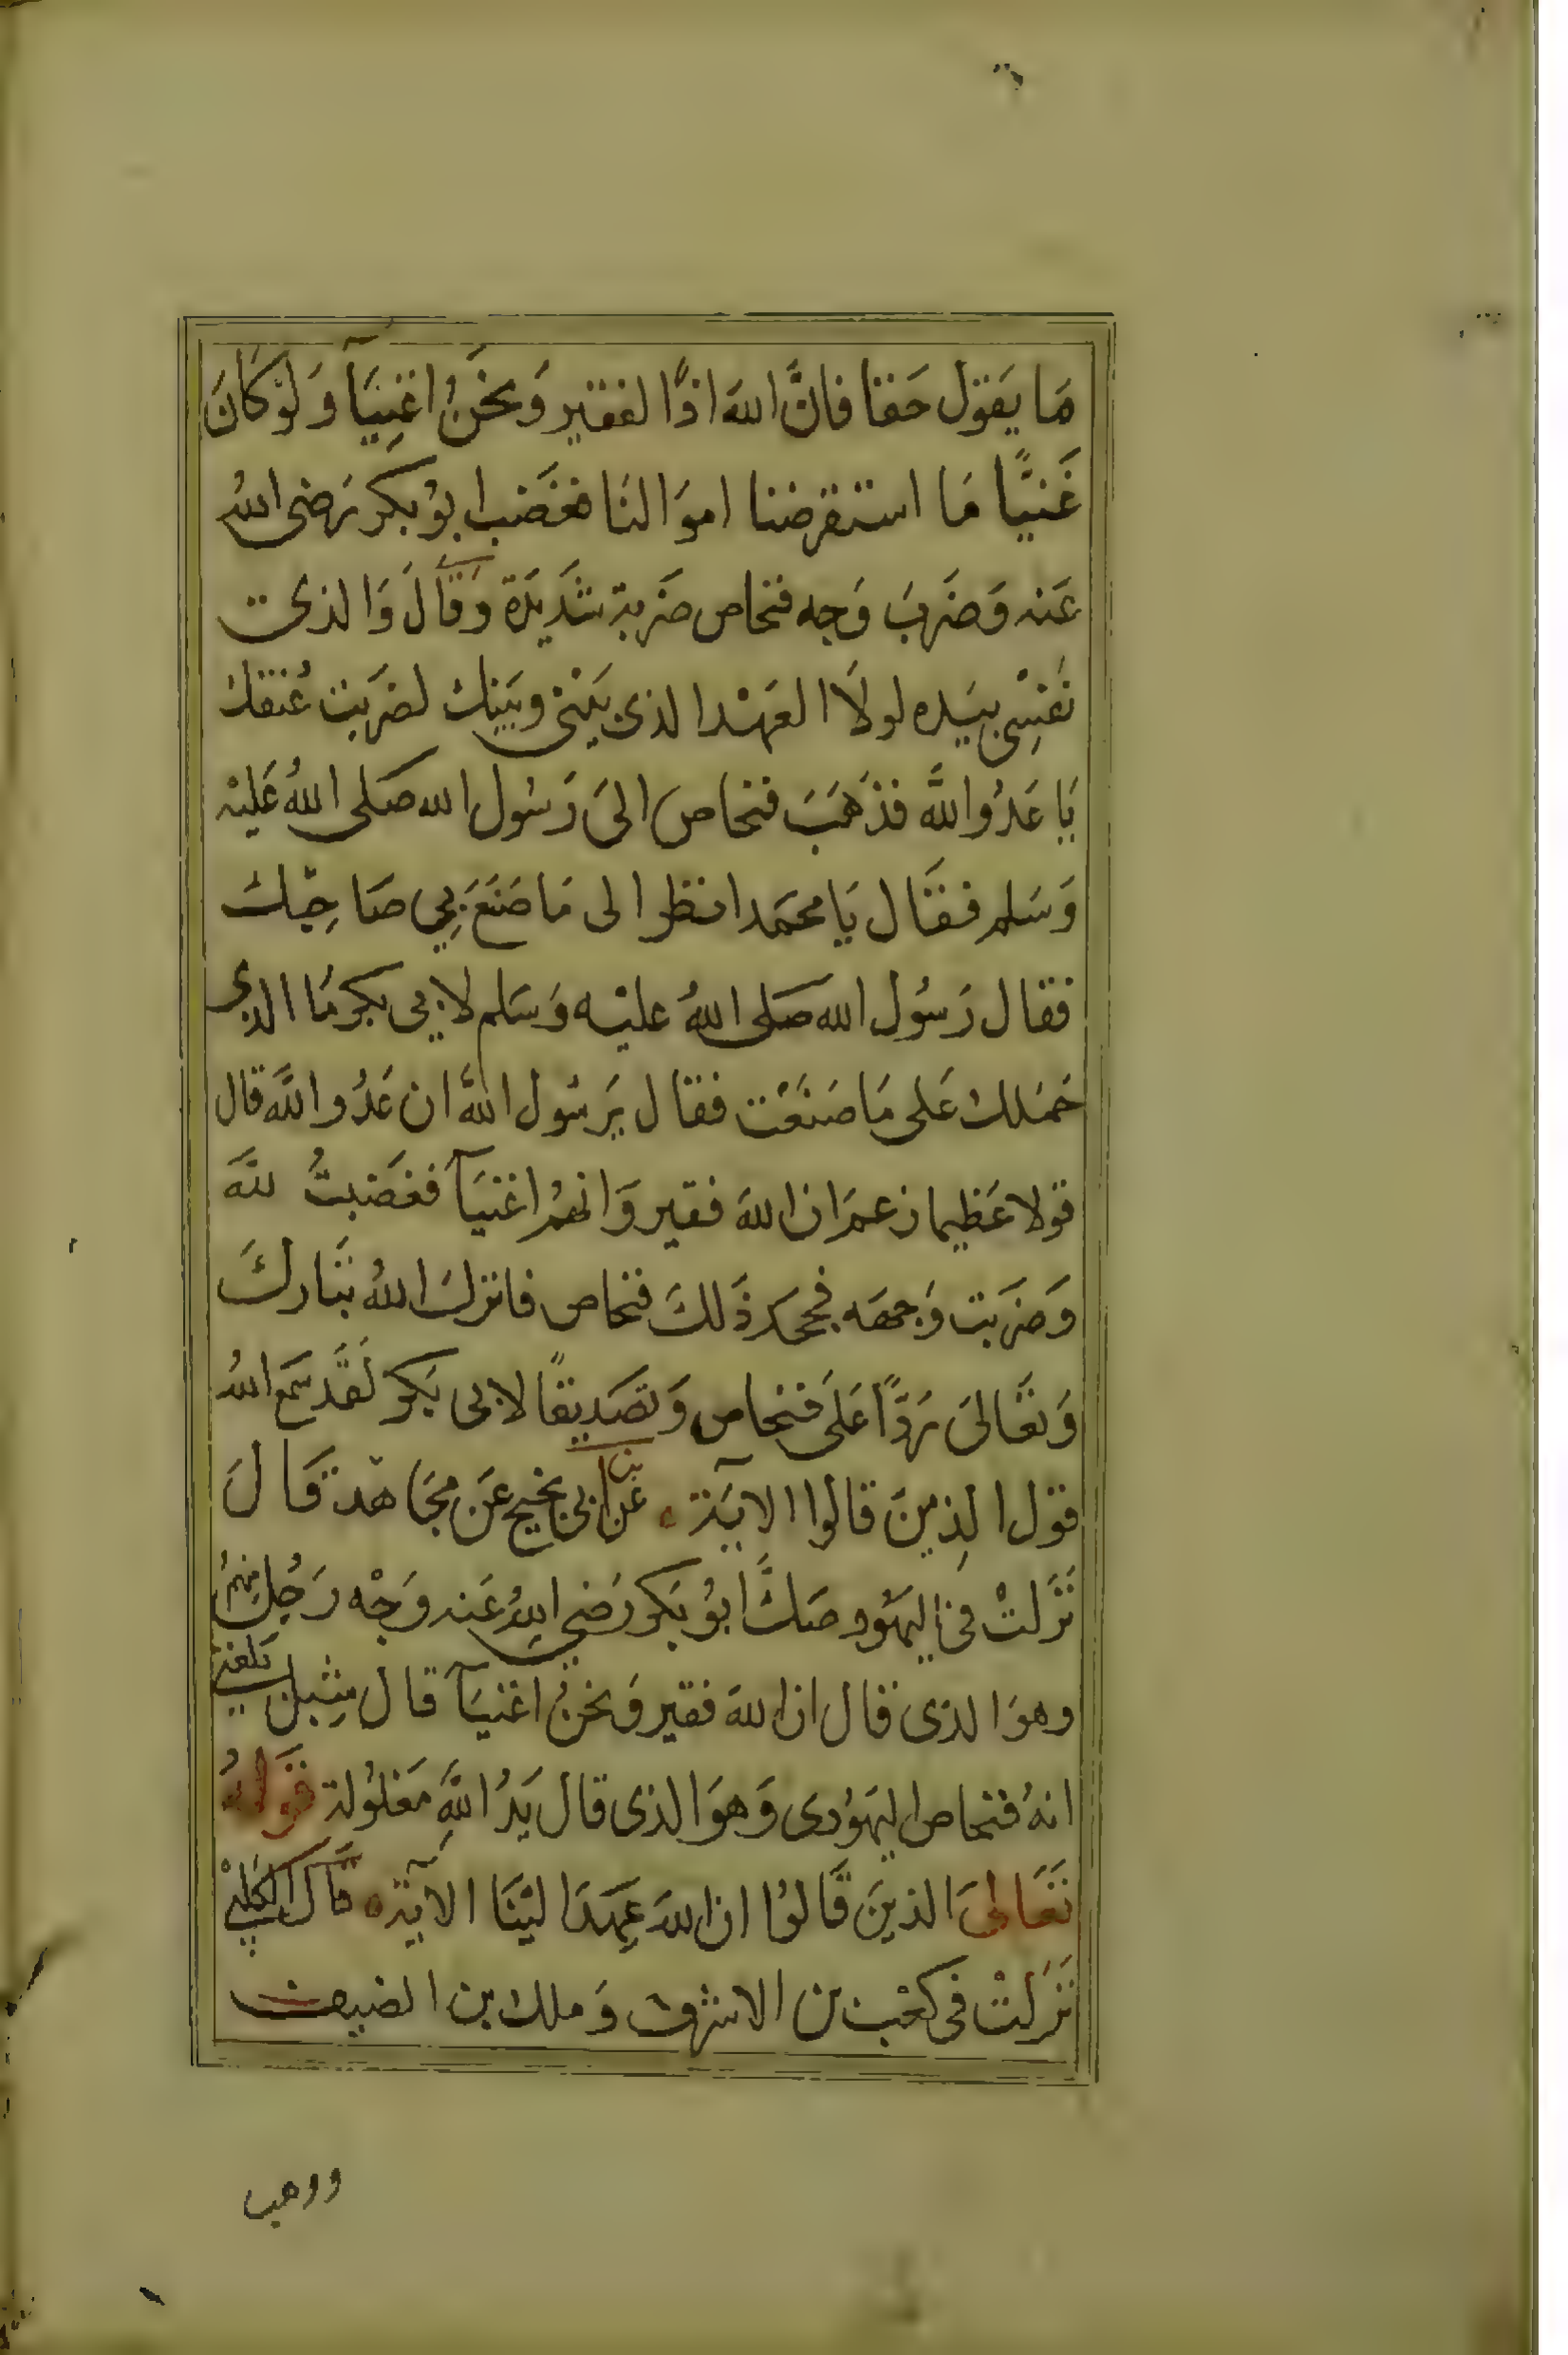 مَا يَقول حَقا فانَّ الله اذًا لفقير وَنحَنُ اغنِيَآ وَلوْ كانَ
غَنيًّا مَا استقرضنا اموَالنَا فغَضَب ابوُ بكر رَضى اللهُ
عَنه وَضَربَ وَجه فنحاص ضَربة شَديدَة وَقالَ وَالذى
نَفسِى بيَده لولَا العَهْد الذى بَيْنى وبَينك لضرَبت عُنقك
يَا عَدُو اللَّه فذهَبَ فنحاص الىَ رَسُول الله صَلى اللهُ عَليْه
وَسَلم فقَال يَا محمَد انظر الى مَا صَنَعَ بِي صَاحِبك
فقال رَسُول الله صَلى اللهُ عليْه وَسَلم لابى بكر مَا الذى
حَمَلك عَلى مَا صَنَعْت فقال يَرسُول اللَّه ان عَدُو اللَّه قال
قولا عَظيما زعمَ ان اللهَ فقير وَانهمُ اغنيَآ فغَضَبتُ للَّه
وَضرَبت وَجهَه فجحَد ذَلكَ فنحاص فانزلَ اللهُ تبَارك
وَتعَالىَ رَدًّا عَلَى فنحاص وَتصَديقًا لابى بَكر لَقَد سَمع اللهُ
قول الذِينَ قالوا الآيَة ه عن ابن ابى نجيح عَن مجَاهد قَالَ
نَزَلتْ فى اليهَود صَكَّ ابُو بَكر رَضي اللهُ عَنه وَجْه رَجُل منهمُ
وهوَ الذى قال ان اللهَ فقير وَنحنُ اغنيَآ قال شِبل بَلغنى
انهُ فنحاص اليهَوُدى وَهوَ الذى قال يَدُ اللَّهِ مَغلوُلة قوَلهُ
تَعَالىَ الذينَ قَالوُا ان الله عَهِدَ اليْنَا الآية ه قَالَ الكَلبيْ
نَزَلتْ فى كعْب بن الاشرف وَملك بن الضيف
ووهب